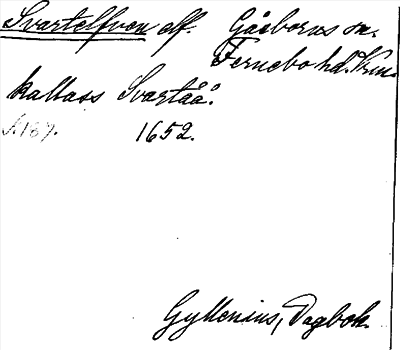 Svartelfven elf. Gåsborns sn.
Fernebo hd. Vrm.
kallass Svartåå.
s. 187. 1652.
Gyllenius, Dagbok.